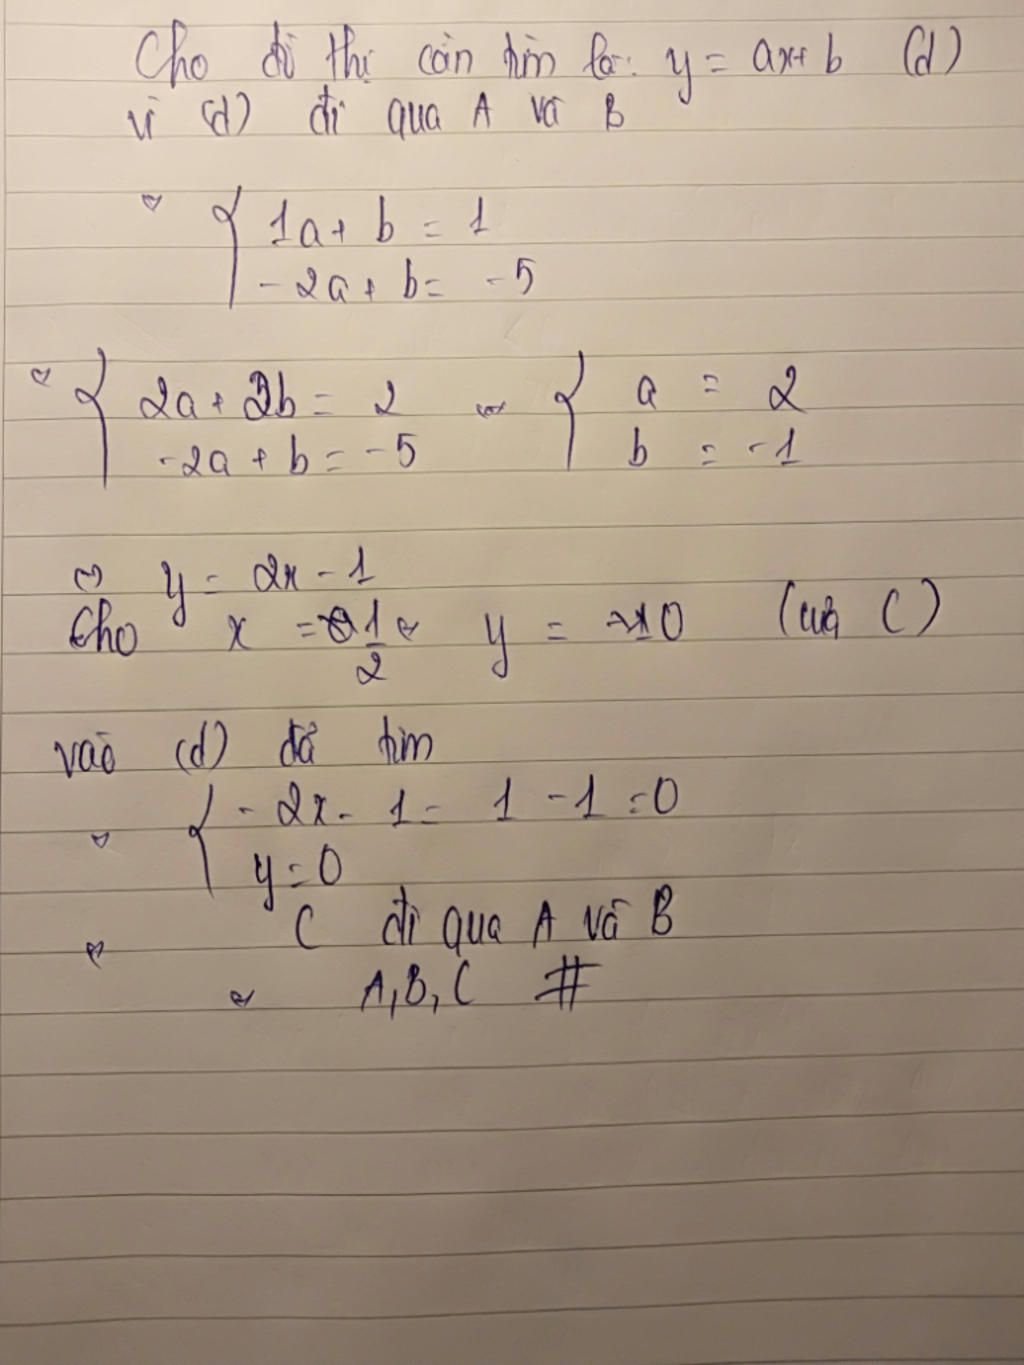 Cho đồ thị cần tìm là: y = ax + b (d)
vì (d) đi qua A và B
{ 1a + b = 1
-2a + b = -5
{ 2a + 2b = 2 { a = 2
-2a + b = -5 b = -1
y = 2x - 1
Cho x = 1/2 y = 0 (của C)
vào (d) đã tìm
{ - 2x - 1 = 1 - 1 = 0
y = 0
C đi qua A và B
A, B, C #